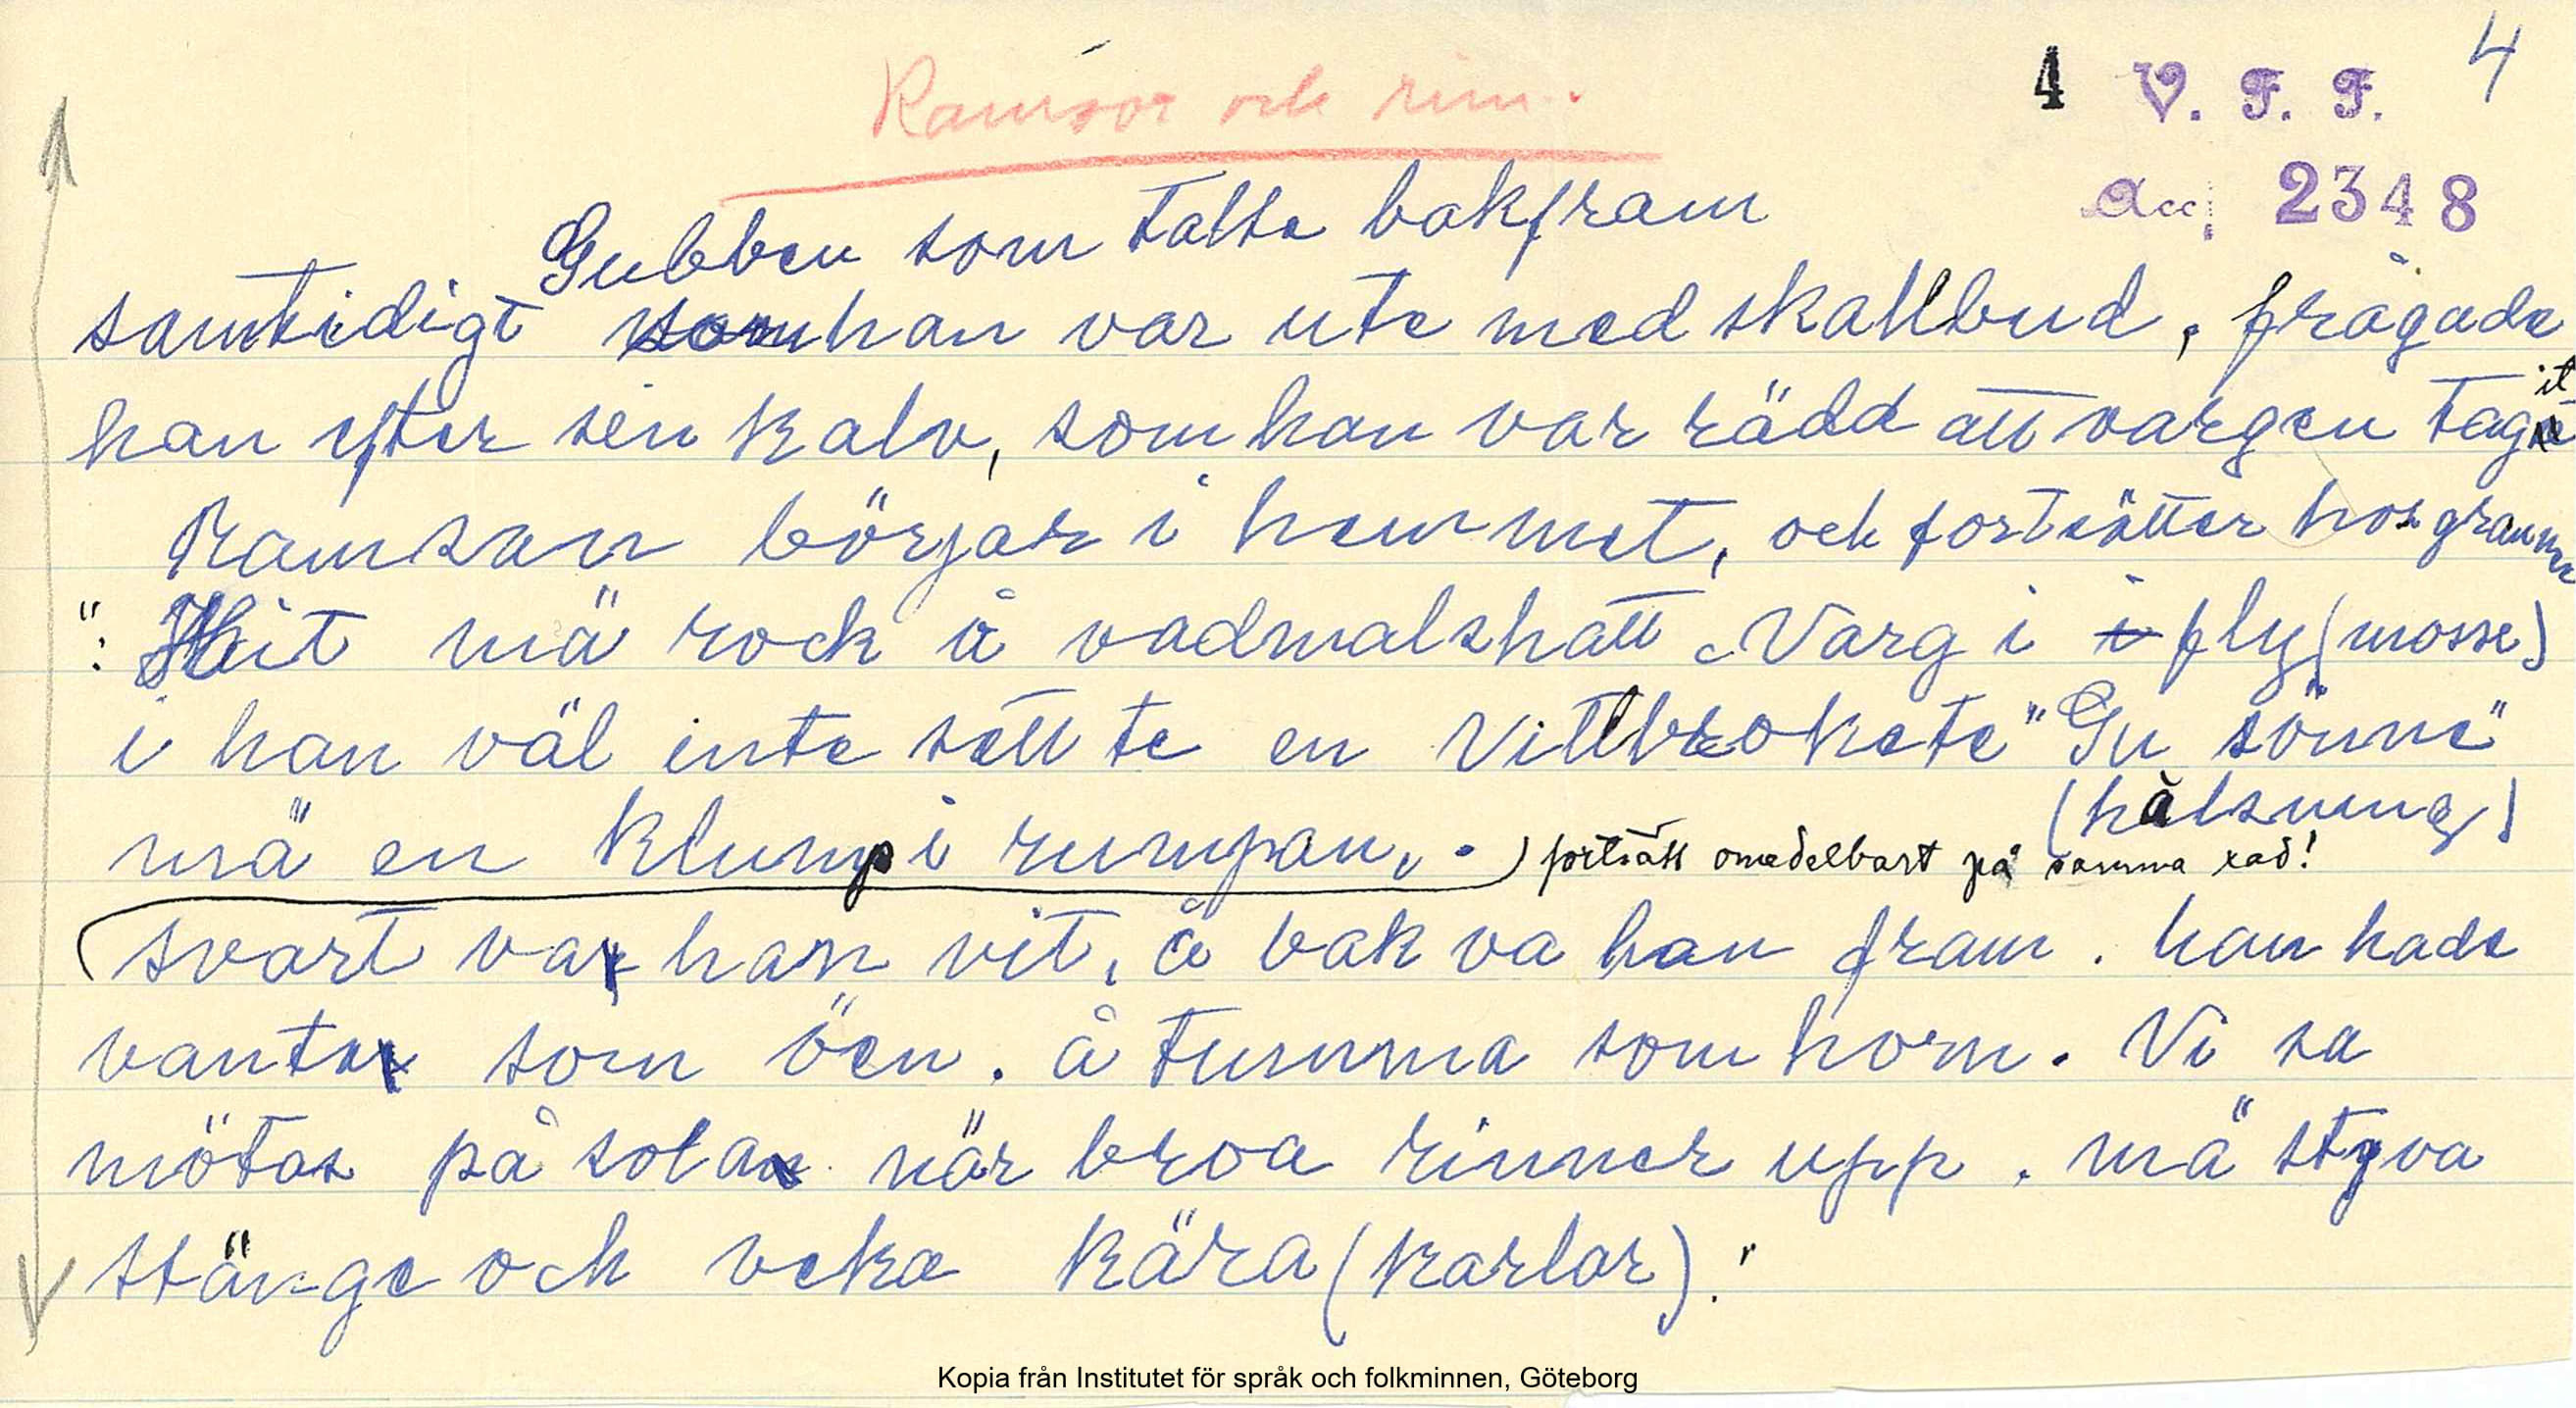 Ramsor och rim.
4 V. F. F. 4
Acc. 2348
Gubben som talte bakfram
samtidigt som han var ute med skallbud, frågade
han efter sin kalv, som han var rädd att vargen tagit
Ramsan börjar i hemmet, och fortsätter hos granne
": Hit mä rock å vadmalshatt. Varg i i fly (mosse)
i han väl inte sett te en Vittbrokete" "Gu sönne"
(hälsning)
mä en klump i rumpan, . fortsätt omedelbart på samma rad!
svart va han vit, å bak va han fram. han hade
vanta som öen. å tumma som horn. Vi sa
mötas på sola när broa rinner upp. mä styva
stänge och veka kära (karlar)."
Kopia från Institutet för språk och folkminnen, Göteborg